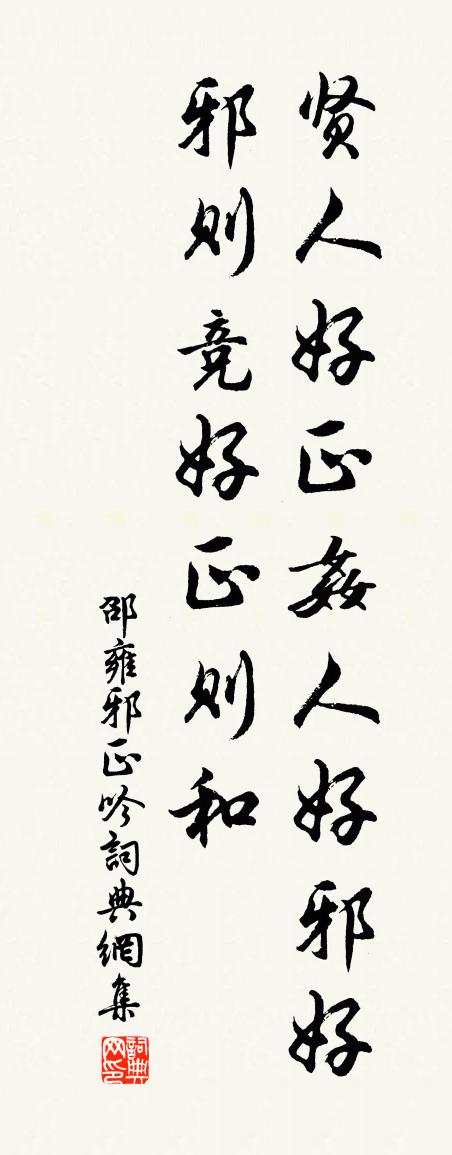 贤人好正姦人好邪好
邪则竞好正则和
邵雍邪正吟詞典網集
詞典网印